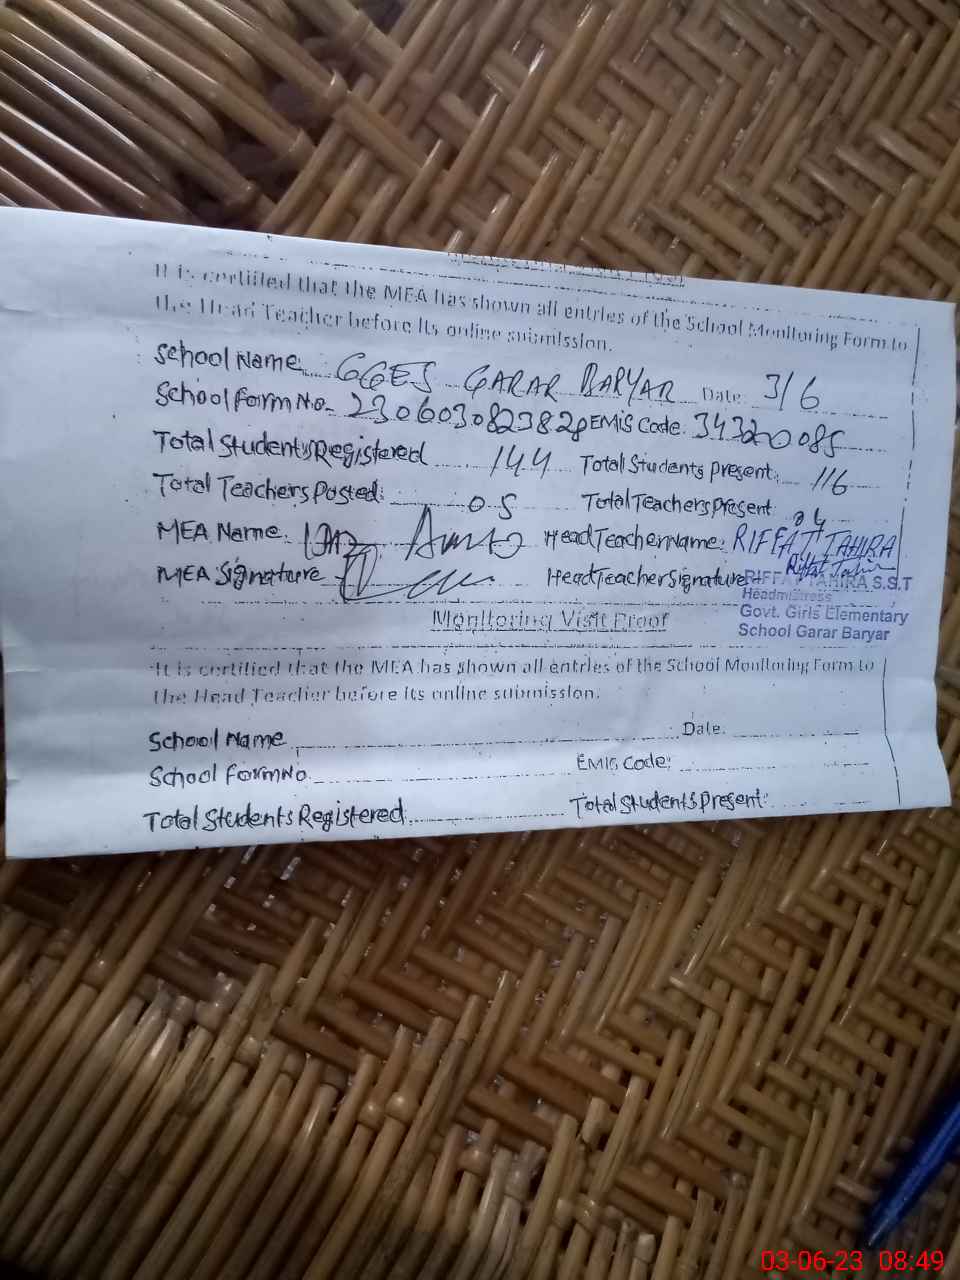 It is certified that the MEA has shown all entries of the School Monitoring Form to
the Head Teacher before its online submission.
School Name: GGES GARAR BARYAR Date: 3/6
School Form No. 2306030823828 EMIS Code. 34320085
Total Students Registered 144 Total Students present: 116
Total Teachers Posted: 05 Total Teachers Present 04
MEA Name: Head Teacher Name: RIFFAT TAHIRA
MEA Signature Head Teacher Signature Riffat Tahira
RIFFAT TAHIRA S.S.T
Headmistress
Govt. Girls Elementary
School Garar Baryar
Monitoring Visit Proof
It is certified that the MEA has shown all entries of the School Monitoring Form to
the Head Teacher before its online submission.
School Name Date.
School Form No. EMIS Code:
Total Students Registered Total Students Present:
03-06-23 08:49